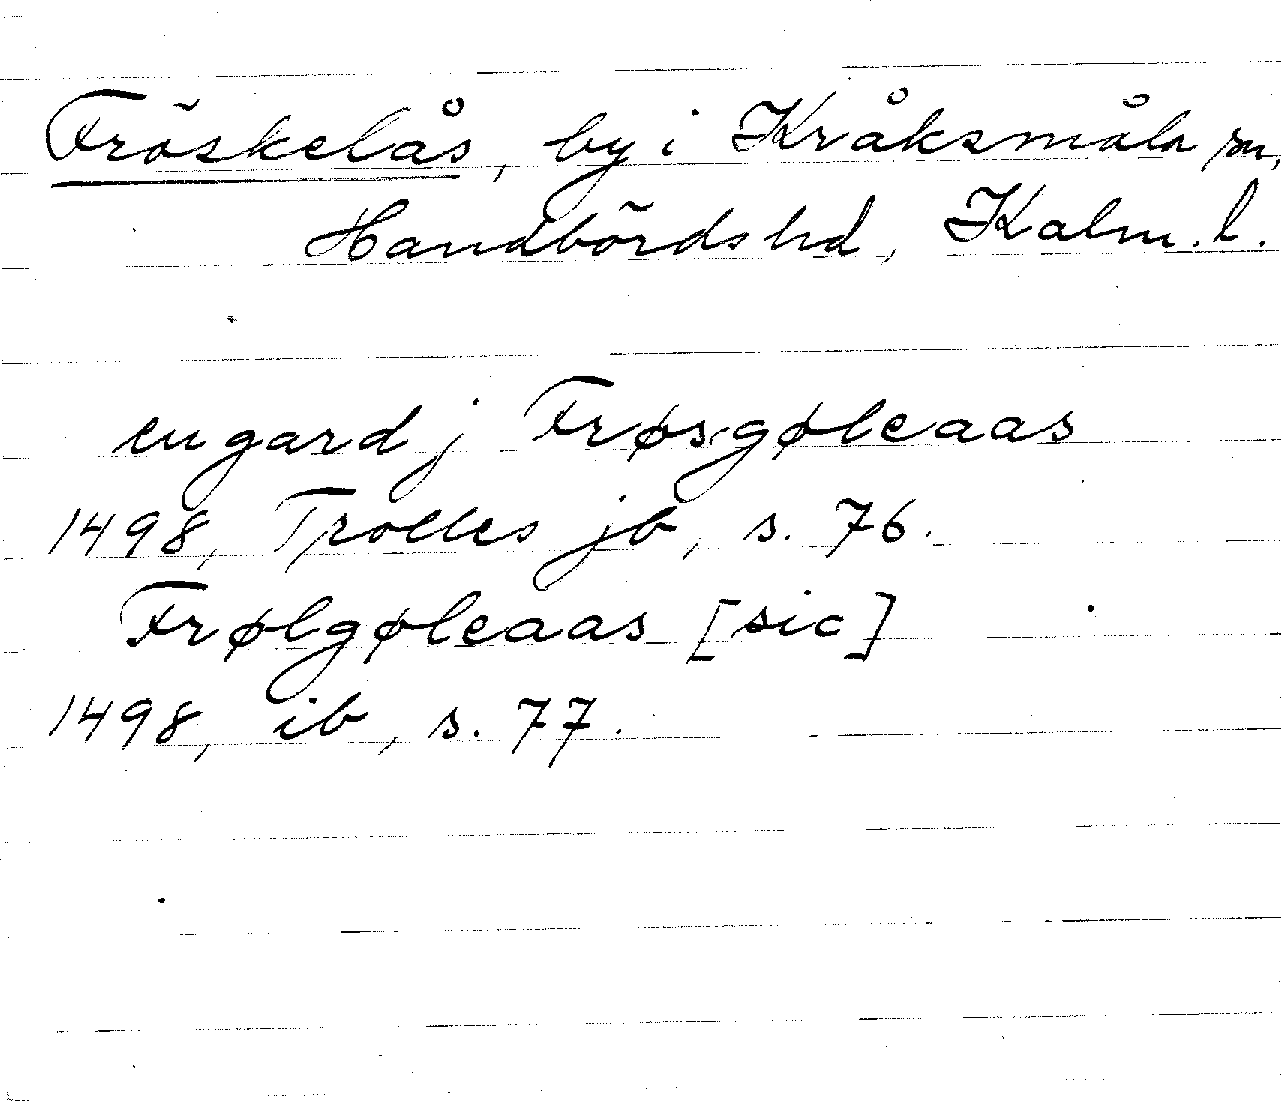 Fröskelås, by i Kråksmåla sn,
Handbörds hd, Kalm. l.
en gard j Frøsgøleaas
1498, Trolles jb, s. 76.
Frølgøleaas [sic]
1498, ib, s. 77.